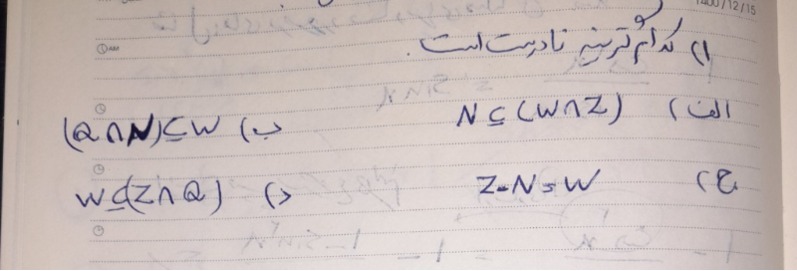 1400/12/15
۱) کدام گزینه نادرست است.
الف) N ⊆ (W∩Z) ب) (Q∩N)⊆W
ج) Z-N=W د) W⊆(Z∩Q)